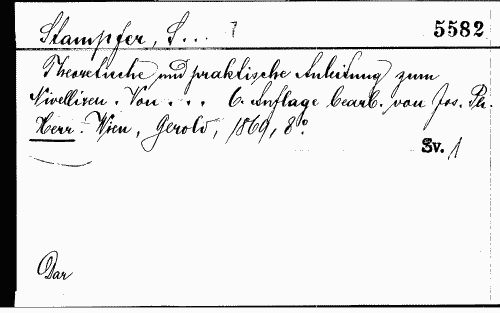 Stampfer, S... 7 5582
Theoretische und praktische Anleitung zum
Nivelliren. Von . . . 6. Auflage bearb. von Jos. Ph.
Herr. Wien, Gerold, 1869, 8°.
Sv. 1
Dar